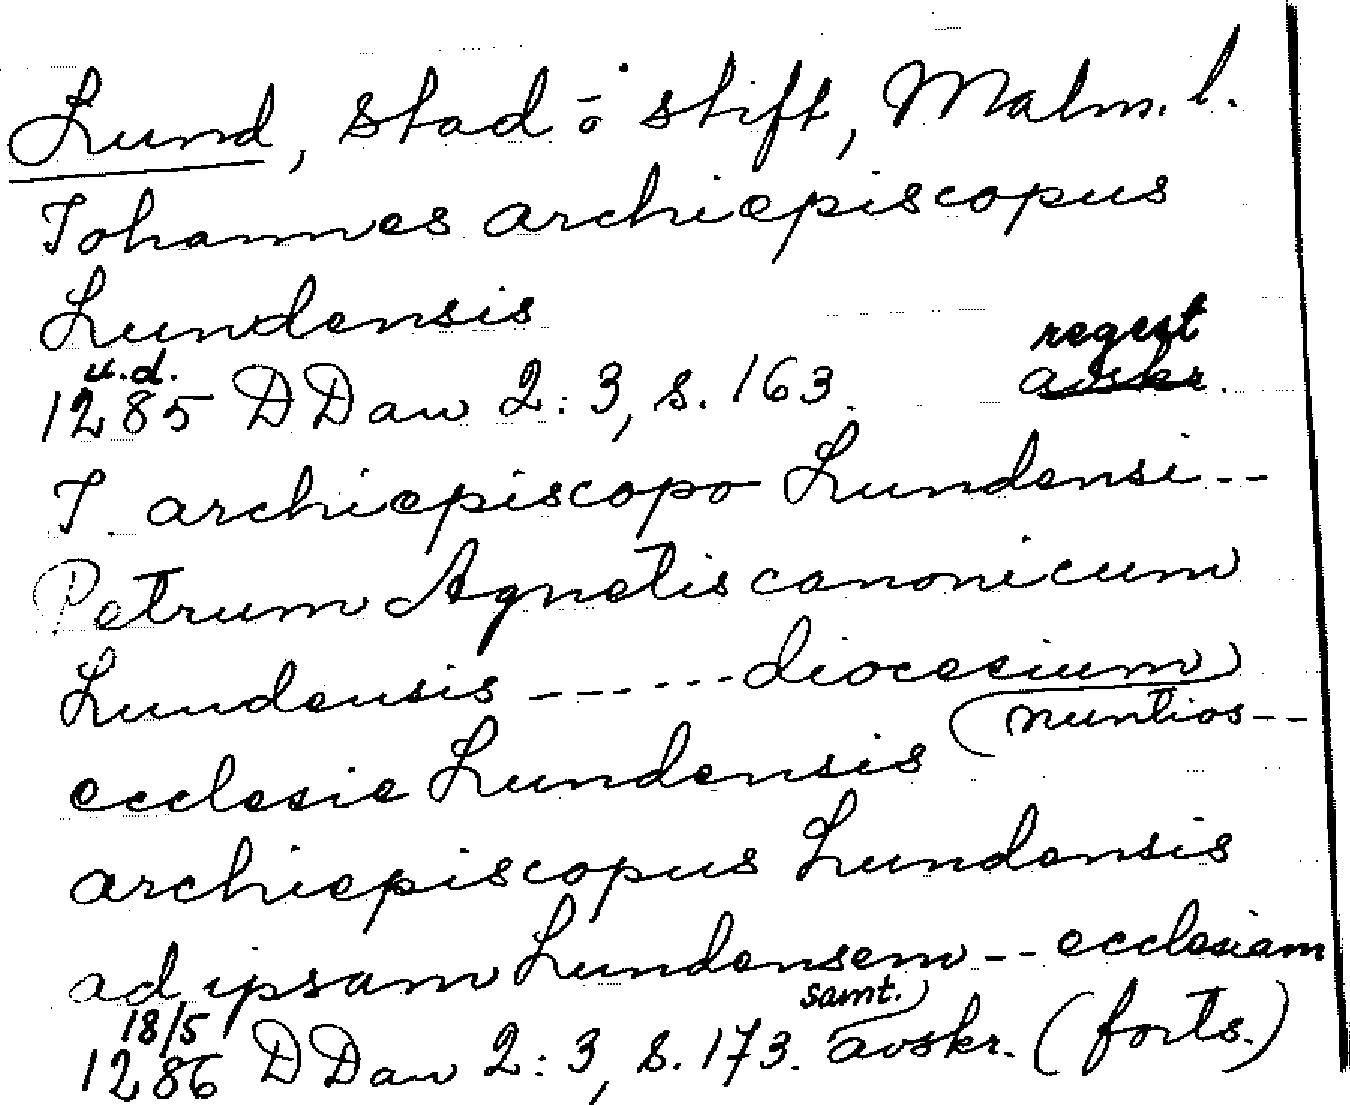 Lund, stad o stift, Malm. l.
Johannes archiepiscopus
Lundensis
u.d.
1285 DDan 2:3, s. 163. regest avskr.
J. archiepiscopo Lundensi --
Petrum Agnetis canonicum
Lundensis ------ diocesium
(nuntios --
ecclesie Lundensis
archiepiscopus Lundensis
ad ipsam Lundensem -- ecclesiam
18/5 samt.
1286 DDan 2:3, s. 173. avskr. (forts.)